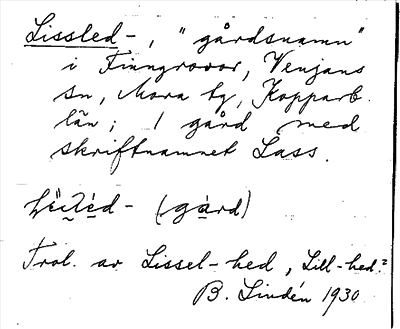 Lissled-, "gårdsnamn"
i Finngrovor, Venjans
sn, Mora tg, Kopparb.
län; 1 gård med
skriftnamnet Lass.
(gård)
Trol. av Lissel-hed, Lill-hed?
B. Lindén 1930